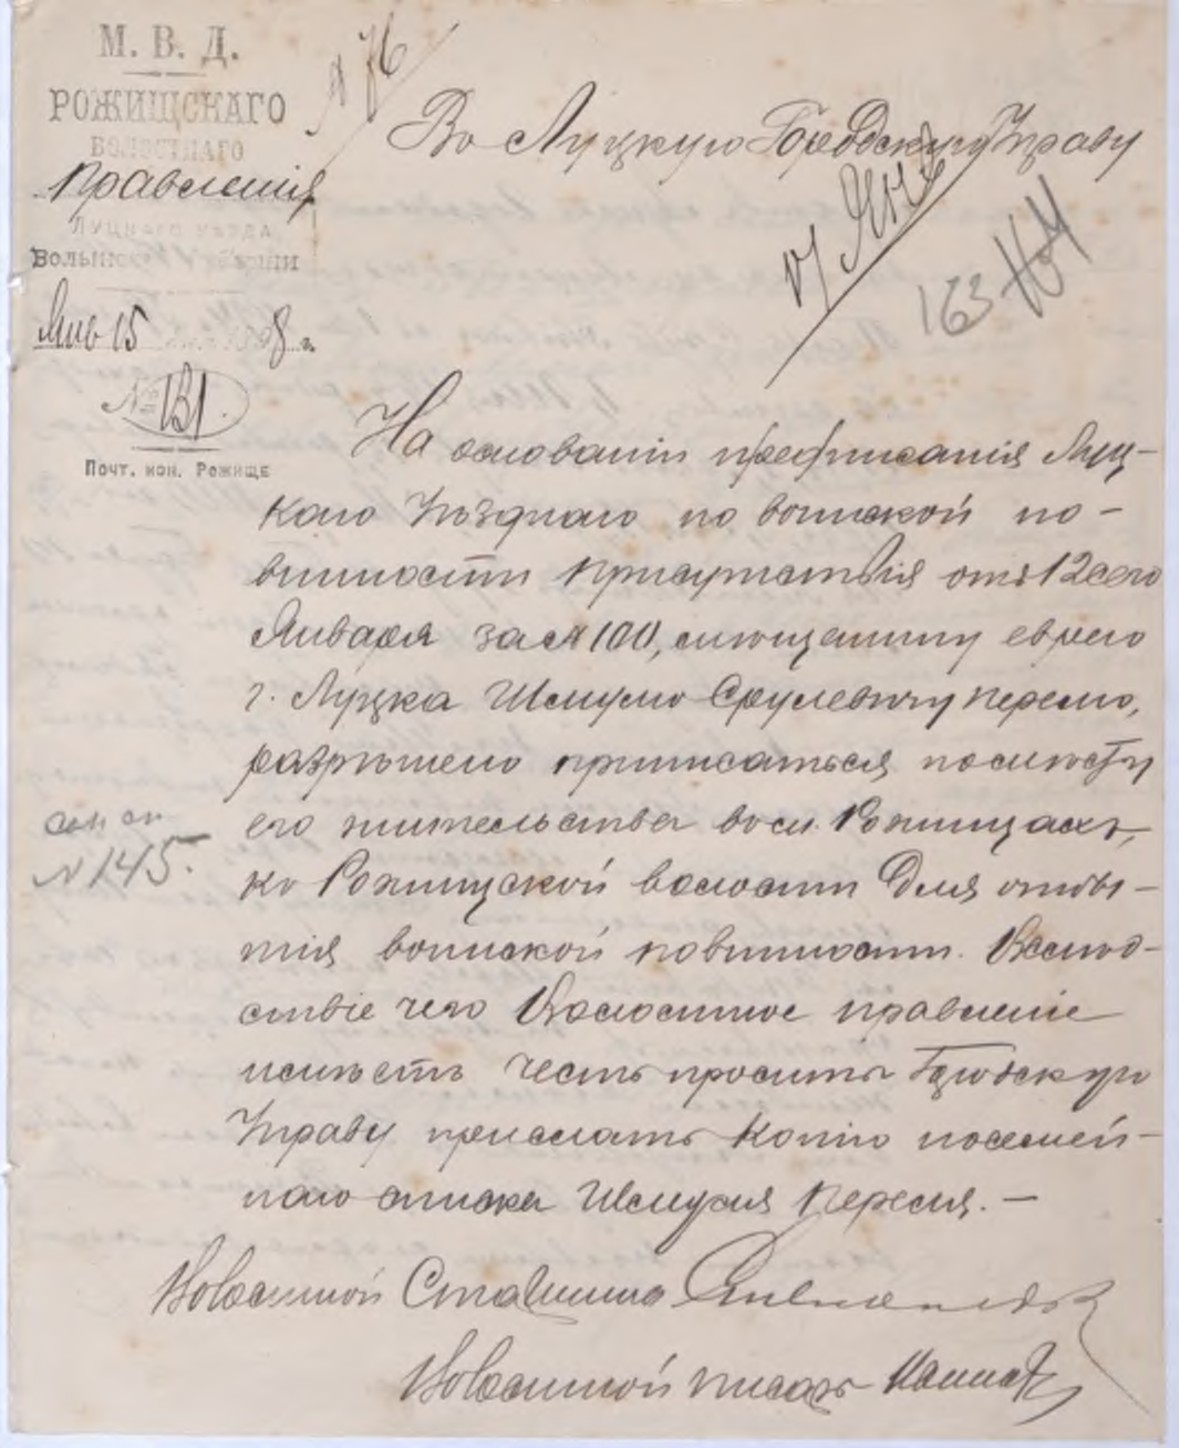 М. В. Д.
РОЖИЩСКАГО
ВОЛОСТНАГО
Правленія
ЛУЦКАГО УѢЗДА
Волынской Губерніи
Янв 15 1898 г.
№ 131.
Почт. кон. Рожище
№ 76
Въ Луцкую Городскую Управу
17 Янв
163
На основаніи предписанія Луц-
каго Уѣзднаго по воинской по-
винности Присутствія отъ 12 сего
Января за № 100, мѣщанину еврею
г. Луцка Шмулю Срулевичу Перелю,
разрѣшено приписаться по мѣсту
его жительства въ м. Рожищахъ,
къ Рожищской волости для отбы-
тія воинской повинности. Вслѣд-
ствіе чего Волостное правленіе
имѣетъ честь просить Городскую
Управу прислать копію посемей-
наго списка Шмуля Переля. —
сем сп.
№ 145.
Волостной Старшина
Волостной писарь